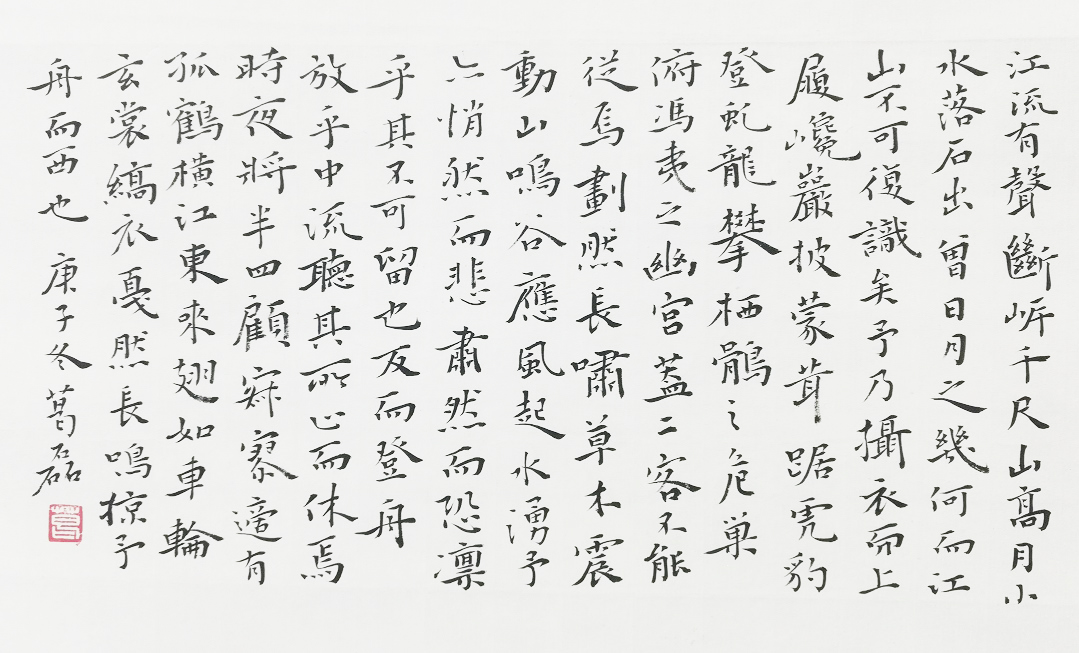 江流有聲斷岸千尺山高月小
水落石出曾日月之幾何而江
山不可復識矣予乃攝衣而上
履巉巖披蒙茸踞虎豹
登虬龍攀栖鶻之危巢
俯馮夷之幽宮蓋二客不能
從焉劃然長嘯草木震
動山鳴谷應風起水湧予
亦悄然而悲肅然而恐凛
乎其不可留也反而登舟
放乎中流聽其所止而休焉
時夜將半四顧寂寥適有
孤鶴橫江東來翅如車輪
玄裳縞衣戛然長鳴掠予
舟而西也 庚子冬葛磊